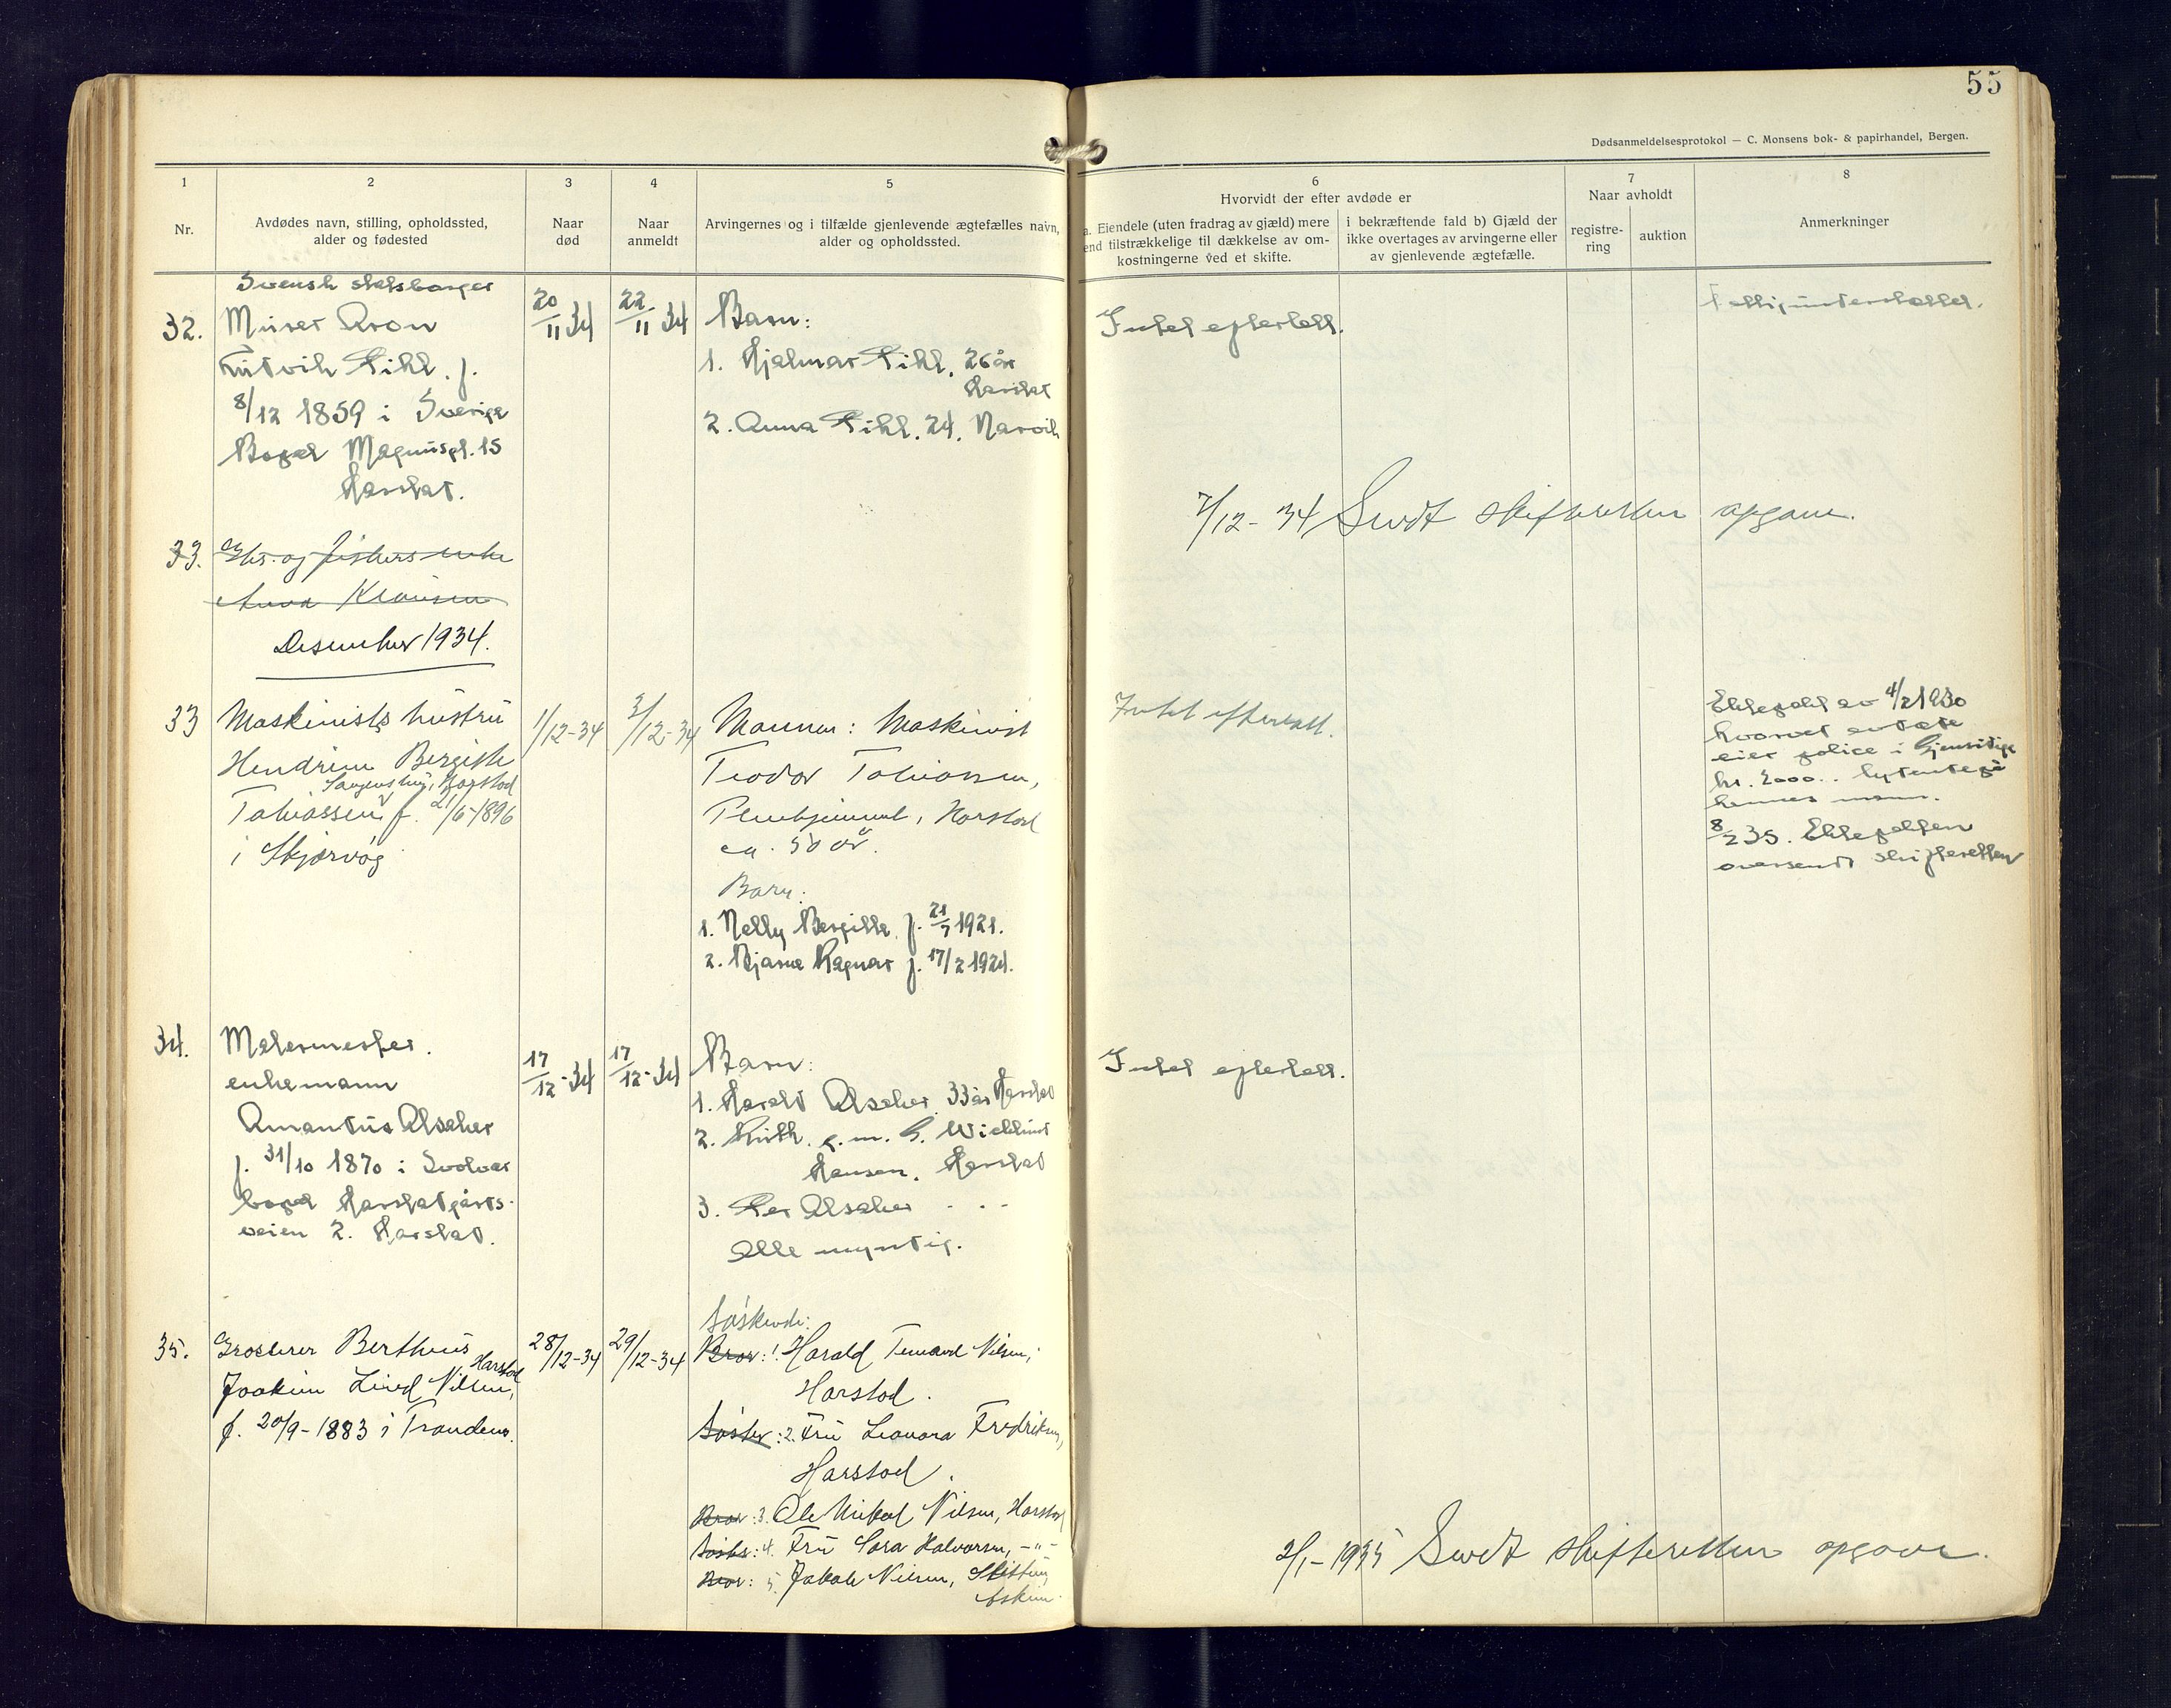 55
Dødsanmeldelsesprotokol — C. Monsens bok- & papirhandel, Bergen.
1
2
3
4
5
6
7
8
Nr.
Avdødes navn, stilling, opholdssted,
alder og fødested
Naar
død
Naar
anmeldt
Arvingernes og i tilfælde gjenlevende ægtefælles navn,
alder og opholdssted.
Hvorvidt der efter avdøde er
a. Eiendele (uten fradrag av gjæld) mere
end tilstrækkelige til dækkelse av om-
kostningerne ved et skifte.
i bekræftende fald b) Gjæld der
ikke overtages av arvingerne eller
av gjenlevende ægtefælle.
Naar avholdt
registre-
ring
auktion
Anmerkninger
Svensk statsborger
32.
Murer Aron
Ludvik Pihl. f.
8/12 1859 i Sverige
Bopæl Magnusgt. 15
Harstad.
20/11 34
22/11 34
Barn:
1. Hjalmar Pihl, 26 år
Harstad
2. Anna Pihl. 24. Narvik
Intet efterlatt.
Fattigunderstøttet.
7/12-34 Sendt skifteretten opgave.
33.
Gbr. og fiskers enke
Anna Klausen
Desember 1934.
33
Maskinists hustru
Hendrine Bergitte
Harstad
Tobiassen f. 21/6-1896
i Skjervøg
1/12-34
3/12-34
Mannen: Maskinist
Teodor Tobiassen,
Harstad
ca. 50 år.
Barn:
1. Nelly Bergitte f. 21/7 1921.
2. Bjarne Ragnar f. 17/2 1924.
Intet efterlatt.
Ektepakt av 4/2 1930
hvorved avdøde
eier police i Gjensidige
kr. 2000.- lydende på
hennes mann.
8/2 35. Ektepakten
oversendt skifteretten
34.
Malermester.
enkemann
Amandus Alsaker
f. 31/10 1870 i Svolvær
bopæl Harstadgårds-
veien 2. Harstad.
17/12-34
17/12-34
Barn:
1. Harald Alsaker 33 år Harstad
2. Ruth. g.m. G. Wicklund
Hansen. Harstad
3. Per Alsaker - - -
Alle myndig.
Intet efterlatt.
35.
Grosserer Berthus
Harstad
Joakim Lind Nilsen,
f. 20/9-1883 i Trondenes.
28/12-34
29/12-34
Søskende:
Bror: 1. Harald Nilsen,
Harstad.
Søster: 2. Fru Leonora Fredriksen,
Harstad.
Bror: 3. Ole Mikal Nilsen, Harstad
Søster: 4. Fru Sara Halvorsen, -"-
Bror: 5. Jakob Nilsen,
Askim
2/1-1935 Sendt skifteretten opgave.